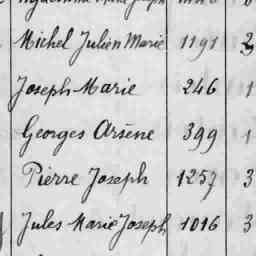 Michel Julien Marie 1191 2
Joseph Marie 246 1
Georges Arsène 399 1
Pierre Joseph 1257 3
Jules Marie Joseph 1016 3